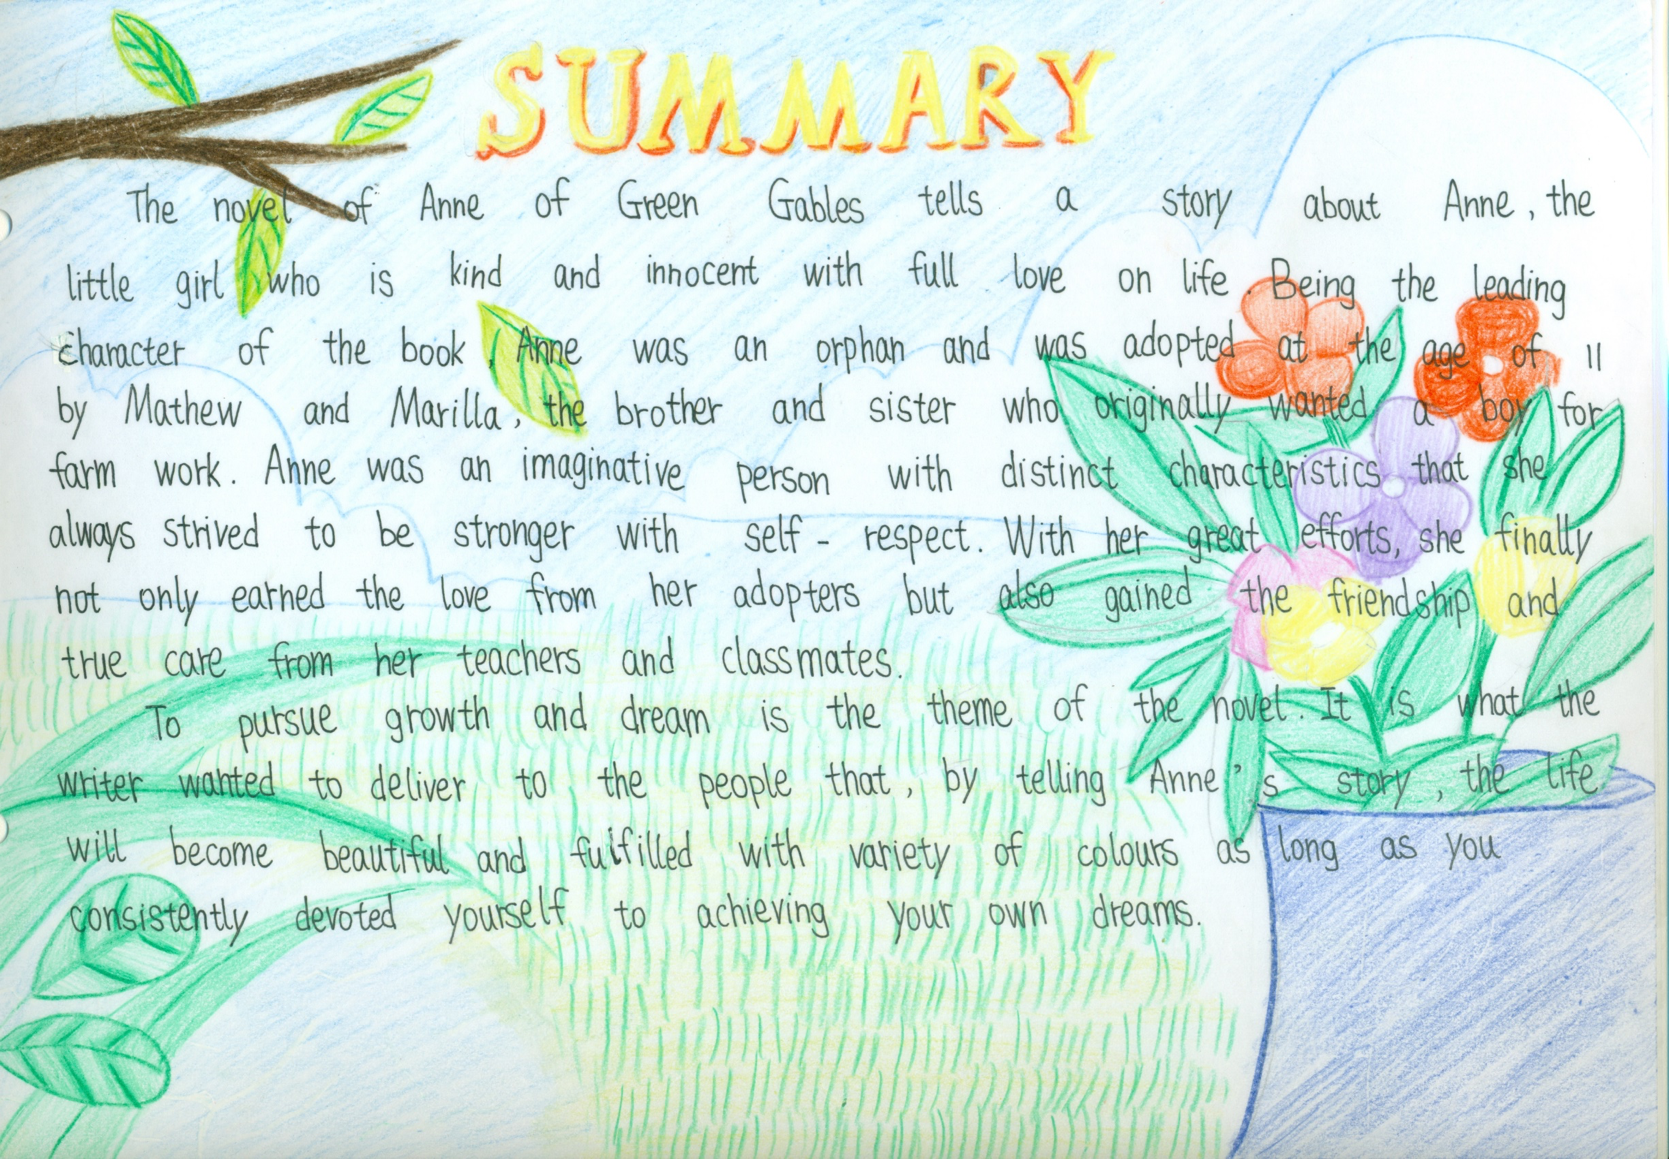 SUMMARY
The novel of Anne of Green Gables tells a story about Anne, the
little girl who is kind and innocent with full love on life. Being the leading
character of the book, Anne was an orphan and was adopted at the age of 11
by Mathew and Marilla, the brother and sister who originally wanted a boy for
farm work. Anne was an imaginative person with distinct characteristics that she
always strived to be stronger with self-respect. With her great efforts, she finally
not only earned the love from her adopters but also gained the friendship and
true care from her teachers and classmates.
To pursue growth and dream is the theme of the novel. It is what the
writer wanted to deliver to the people that, by telling Anne's story, the life
will become beautiful and fulfilled with variety of colours as long as you
consistently devoted yourself to achieving your own dreams.